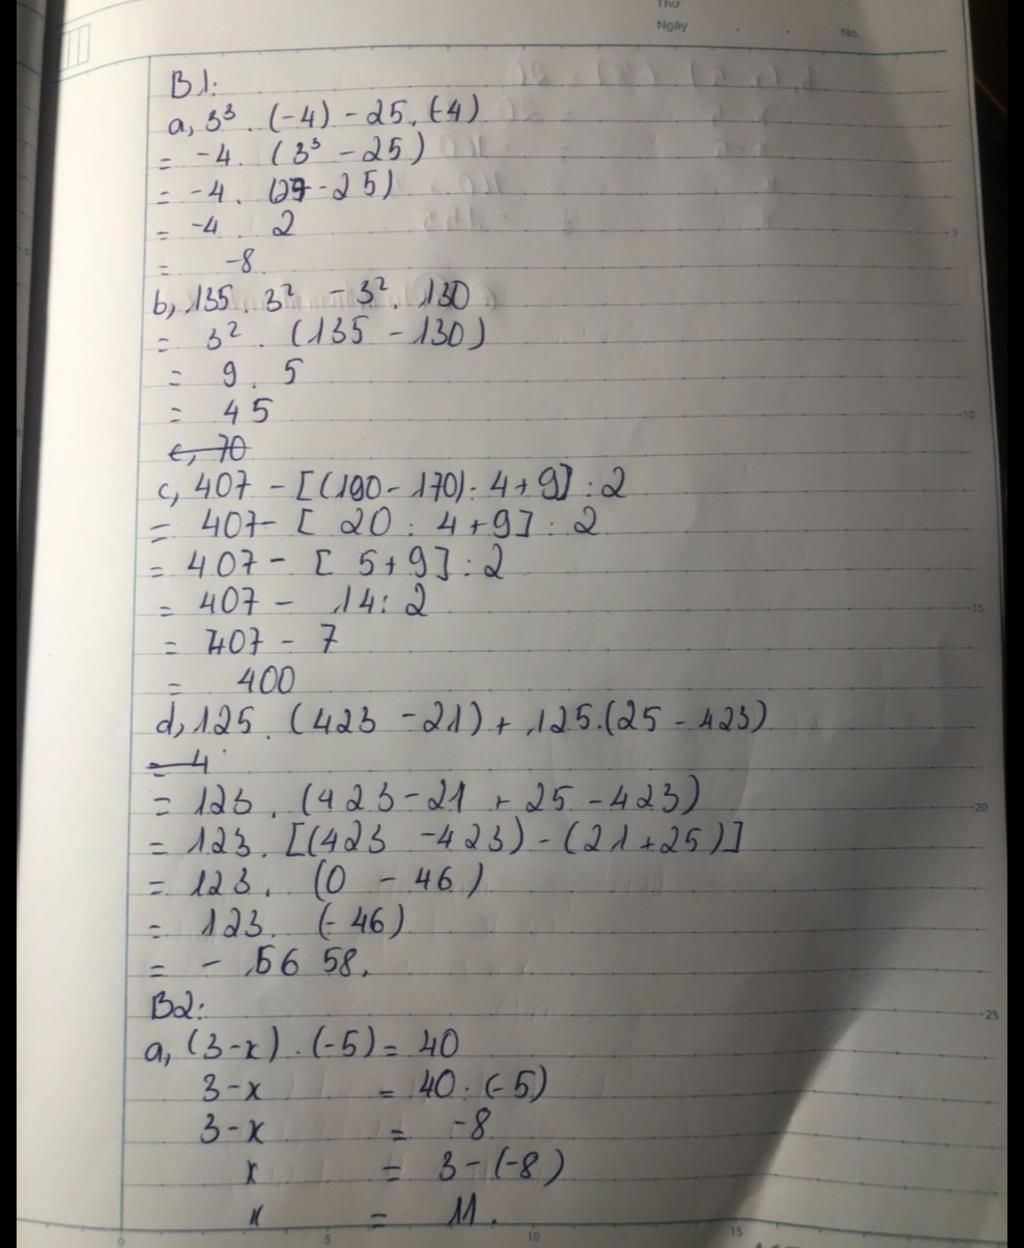 Thứ
Ngày
No.
B1:
a, 3³ . (-4) - 25. (-4)
= -4. (3³ - 25)
= -4 . (27 - 25)
= -4 . 2
= -8.
b, 135 . 3² - 3² . 130
= 3² . (135 - 130)
= 9 . 5
= 45
c, 70
c, 407 - [(190 - 170) : 4 + 9] : 2
= 407 - [ 20 : 4 + 9] : 2
= 407 - [ 5 + 9] : 2
= 407 - 14 : 2
= 407 - 7
= 400
d, 125 . (423 - 21) + 125.(25 - 423)
= 4
= 123 . (423 - 21 + 25 - 423)
= 123. [(423 - 423) - (21 + 25)]
= 123. (0 - 46)
= 123. (-46)
= - 56 58.
B2:
a, (3-x) . (-5) = 40
3-x = 40 : (-5)
3-x = -8
x = 3 - (-8)
x = 11.
5
10
15
20
25
0
5
10
15